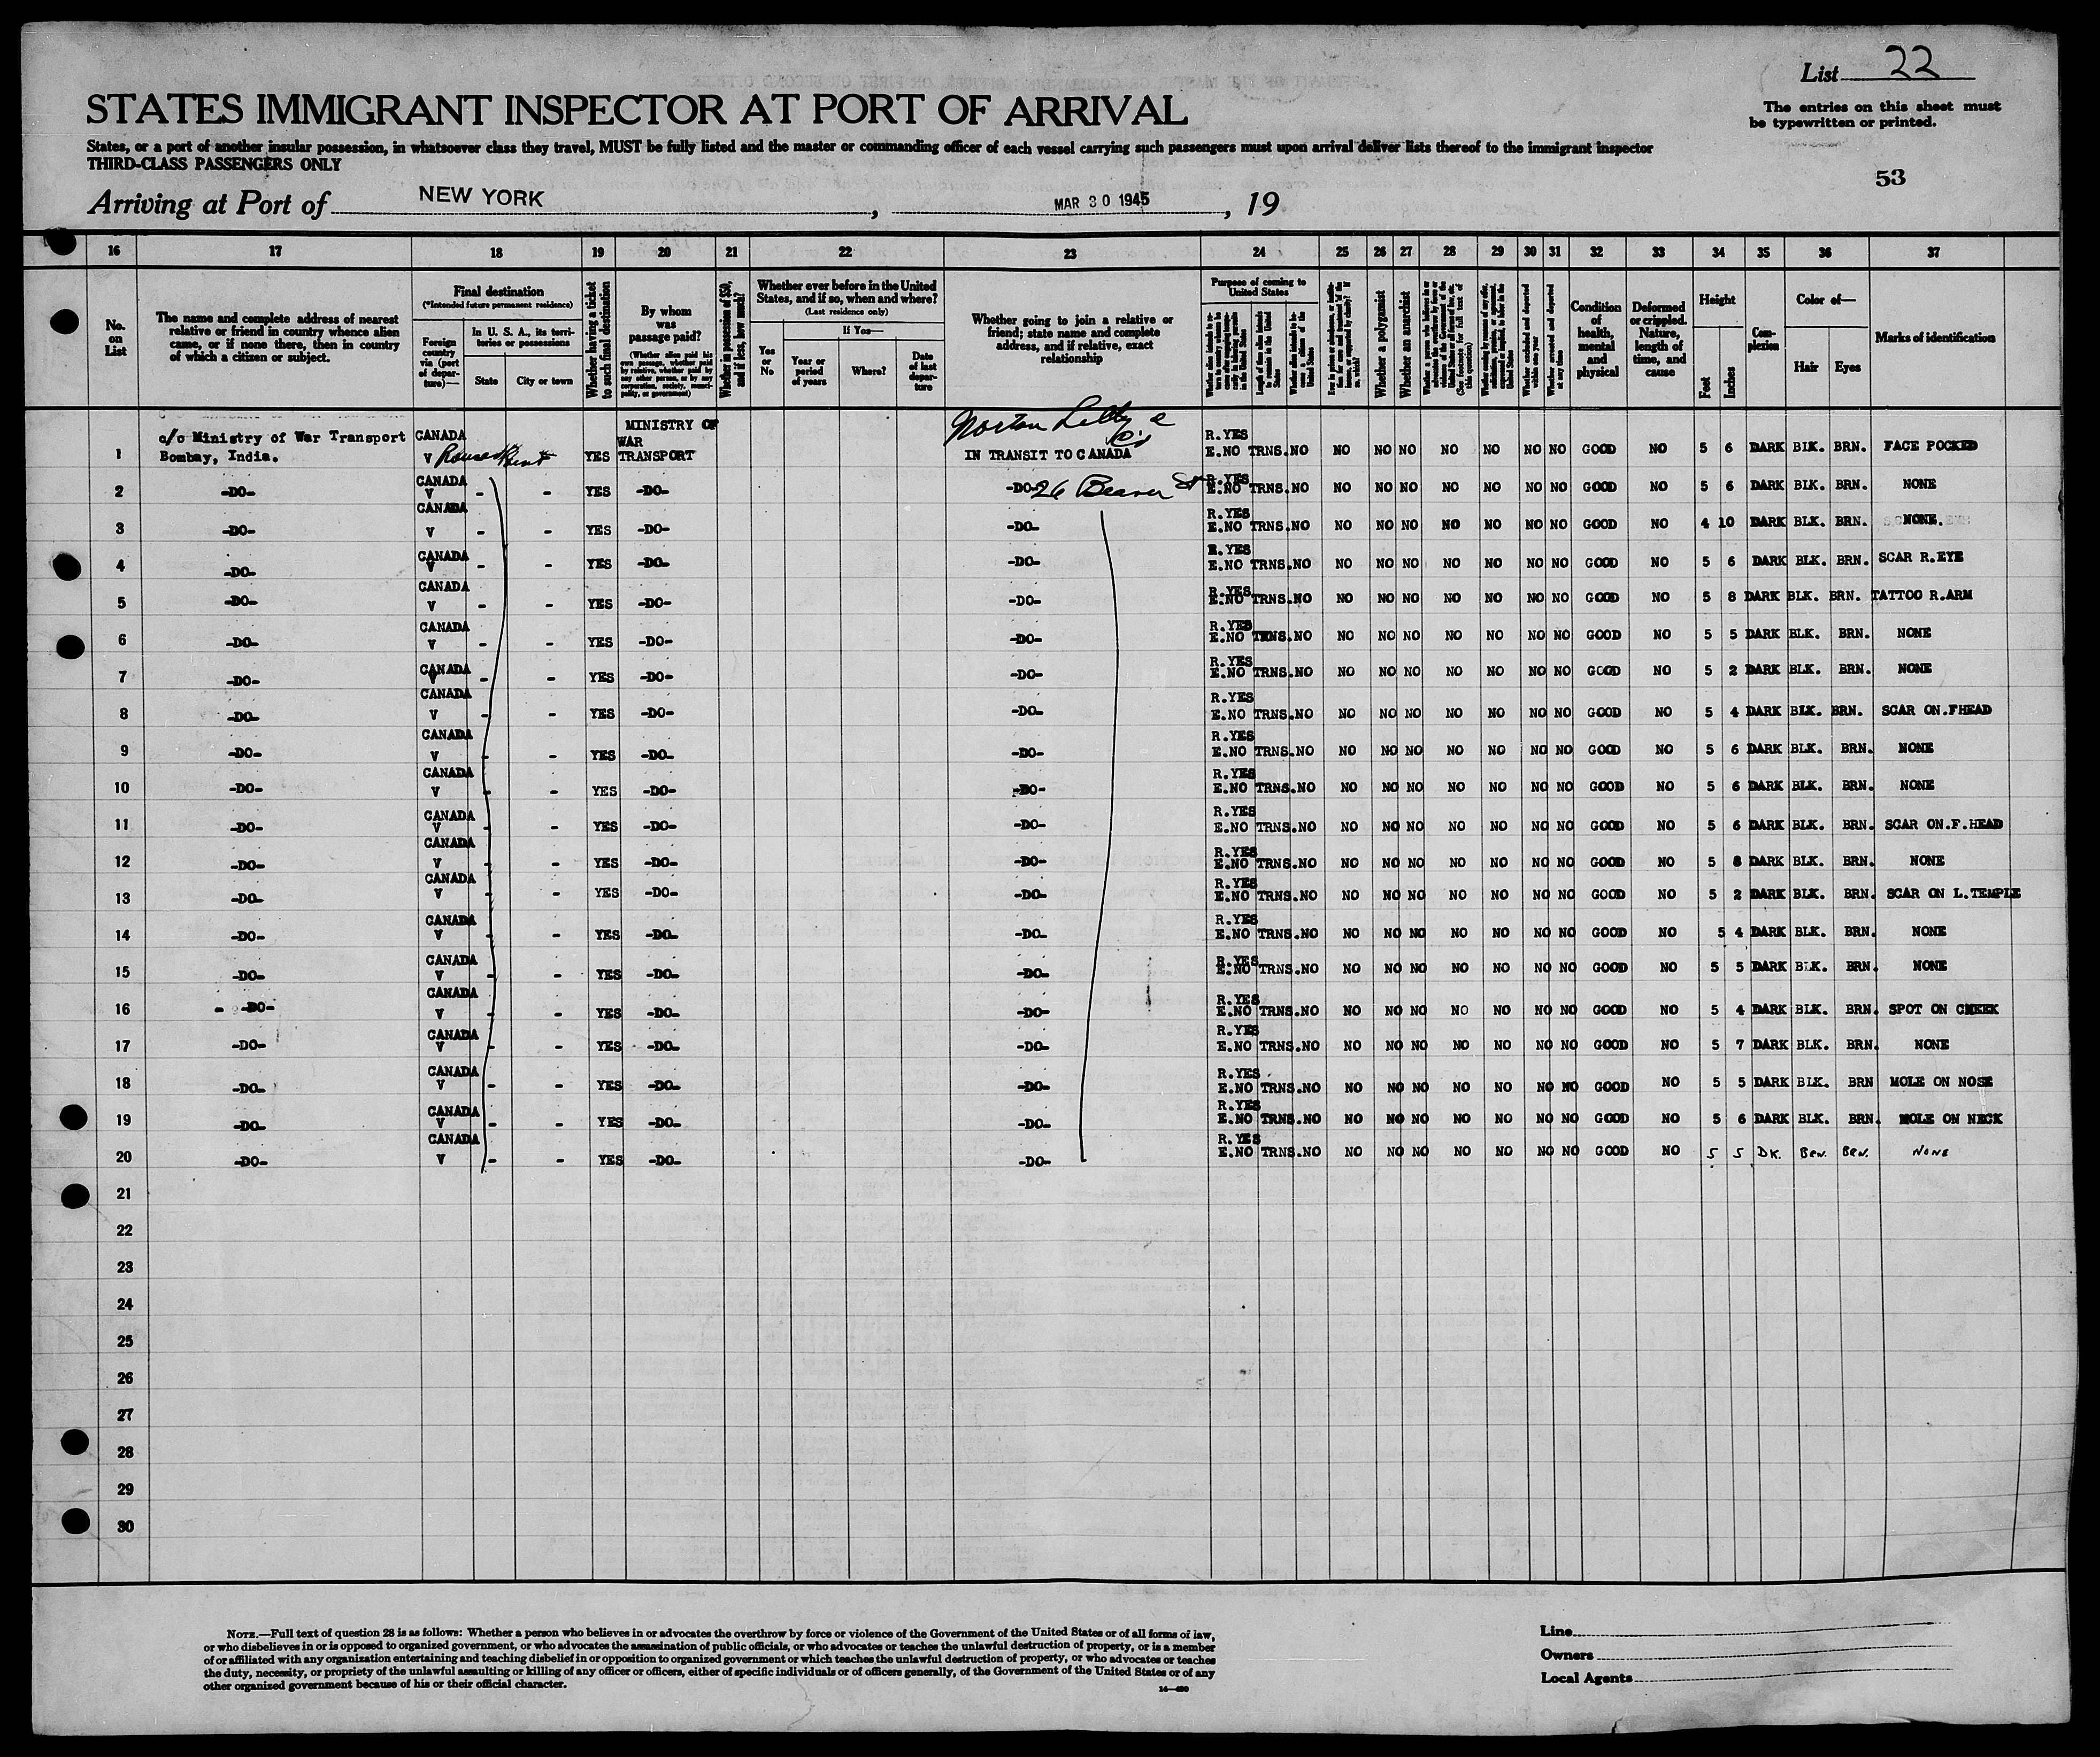 List 22
STATES IMMIGRANT INSPECTOR AT PORT OF ARRIVAL
The entries on this sheet must
be typewritten or printed.
States, or a port of another insular possession, in whatsoever class they travel, MUST be fully listed and the master or commanding officer of each vessel carrying such passengers must upon arrival deliver lists thereof to the immigrant inspector
THIRD-CLASS PASSENGERS ONLY
53
Arriving at Port of NEW YORK, MAR 30 1945, 19
16 17 18 19 20 21 22 23 24 25 26 27 28 29 30 31 32 33 34 35 36 37
No. on List
The name and complete address of nearest relative or friend in country whence alien came, or if none there, then in country of which a citizen or subject.
Final destination
(*Intended future permanent residence)
Foreign country via (port of departure)—
In U. S. A., its territories or possessions
State
City or town
Whether having a ticket to such final destination
By whom was passage paid?
(Whether alien paid his own passage, whether paid by relative, whether paid by any other person, or by any corporation, society, municipality, or government)
Whether in possession of $50, and if less, how much?
Whether ever before in the United States, and if so, when and where?
(Last residence only)
Yes or No
If Yes—
Year or period of years
Where?
Date of last departure
Whether going to join a relative or friend; state name and complete address, and if relative, exact relationship
Purpose of coming to United States
Whether a polygamist
Whether an anarchist
Condition of health, mental and physical
Deformed or crippled. Nature, length of time, and cause
Height
Feet
Inches
Complexion
Color of—
Hair
Eyes
Marks of identification
Norton Lilly & Co
1 c/o Ministry of War Transport Bombay, India. CANADA V YES MINISTRY OF WAR TRANSPORT IN TRANSIT TO CANADA R.YES E.NO TRNS. NO NO NO NO NO NO NO NO GOOD NO 5 6 DARK BLK. BRN. FACE POCKED
2 -DO- CANADA V - - YES -DO- -DO- 26 Beaver St R.YES E.NO TRNS. NO NO NO NO NO NO NO NO GOOD NO 5 6 DARK BLK. BRN. NONE
3 -DO- CANADA V - - YES -DO- -DO- R.YES E.NO TRNS. NO NO NO NO NO NO NO NO GOOD NO 4 10 DARK BLK. BRN. NONE.
4 -DO- CANADA V - - YES -DO- -DO- R.YES E.NO TRNS. NO NO NO NO NO NO NO NO GOOD NO 5 6 DARK BLK. BRN. SCAR R.EYE
5 -DO- CANADA V - - YES -DO- -DO- R.YES E.NO TRNS. NO NO NO NO NO NO NO NO GOOD NO 5 8 DARK BLK. BRN. TATTOO R.ARM
6 -DO- CANADA V - - YES -DO- -DO- R.YES E.NO TRNS. NO NO NO NO NO NO NO NO GOOD NO 5 5 DARK BLK. BRN. NONE
7 -DO- CANADA V - - YES -DO- -DO- R.YES E.NO TRNS. NO NO NO NO NO NO NO NO GOOD NO 5 2 DARK BLK. BRN. NONE
8 -DO- CANADA V - - YES -DO- -DO- R.YES E.NO TRNS. NO NO NO NO NO NO NO NO GOOD NO 5 4 DARK BLK. BRN. SCAR ON.FHEAD
9 -DO- CANADA V - - YES -DO- -DO- R.YES E.NO TRNS. NO NO NO NO NO NO NO NO GOOD NO 5 6 DARK BLK. BRN. NONE
10 -DO- CANADA V - - YES -DO- -DO- R.YES E.NO TRNS. NO NO NO NO NO NO NO NO GOOD NO 5 6 DARK BLK. BRN. NONE
11 -DO- CANADA V - - YES -DO- -DO- R.YES E.NO TRNS. NO NO NO NO NO NO NO NO GOOD NO 5 6 DARK BLK. BRN. SCAR ON.F.HEAD
12 -DO- CANADA V - - YES -DO- -DO- R.YES E.NO TRNS. NO NO NO NO NO NO NO NO GOOD NO 5 8 DARK BLK. BRN. NONE
13 -DO- CANADA V - - YES -DO- -DO- R.YES E.NO TRNS. NO NO NO NO NO NO NO NO GOOD NO 5 2 DARK BLK. BRN. SCAR ON L.TEMPLE
14 -DO- CANADA V - - YES -DO- -DO- R.YES E.NO TRNS. NO NO NO NO NO NO NO NO GOOD NO 5 4 DARK BLK. BRN. NONE
15 -DO- CANADA V - - YES -DO- -DO- R.YES E.NO TRNS. NO NO NO NO NO NO NO NO GOOD NO 5 5 DARK BLK. BRN. NONE
16 - -DO- CANADA V - - YES -DO- -DO- R.YES E.NO TRNS. NO NO NO NO NO NO NO NO GOOD NO 5 4 DARK BLK. BRN. SPOT ON CHEEK
17 -DO- CANADA V - - YES -DO- -DO- R.YES E.NO TRNS. NO NO NO NO NO NO NO NO GOOD NO 5 7 DARK BLK. BRN. NONE
18 -DO- CANADA V - - YES -DO- -DO- R.YES E.NO TRNS. NO NO NO NO NO NO NO NO GOOD NO 5 5 DARK BLK. BRN MOLE ON NOSE
19 -DO- CANADA V - - YES -DO- -DO- R.YES E.NO TRNS. NO NO NO NO NO NO NO NO GOOD NO 5 6 DARK BLK. BRN. MOLE ON NECK
20 -DO- CANADA V - - YES -DO- -DO- R.YES E.NO TRNS. NO NO NO NO NO NO NO NO GOOD NO 5 5 DK. BRN. BRN. NONE
21
22
23
24
25
26
27
28
29
30
NOTE.—Full text of question 28 is as follows: Whether a person who believes in or advocates the overthrow by force or violence of the Government of the United States or of all forms of law,
or who disbelieves in or is opposed to organized government, or who advocates the assassination of public officials, or who advocates or teaches the unlawful destruction of property, or is a member
of or affiliated with any organization entertaining and teaching disbelief in or opposition to organized government or which teaches the unlawful destruction of property, or who advocates or teaches
the duty, necessity, or propriety of the unlawful assaulting or killing of any officer or officers, either of specific individuals or of officers generally, of the Government of the United States or of any
other organized government because of his or their official character.
Line
Owners
Local Agents